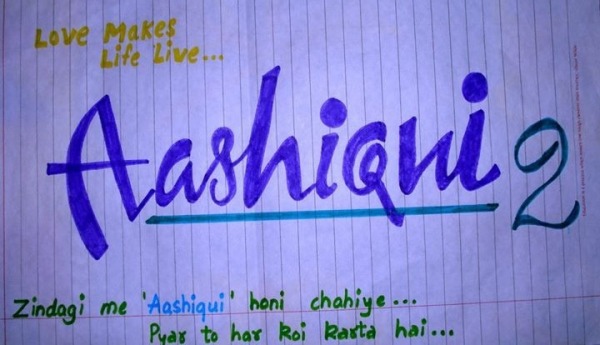 Love Makes
Life Live...
Aashiqui 2
Zindagi me 'Aashiqui' honi chahiye...
Pyar to har koi karta hai...